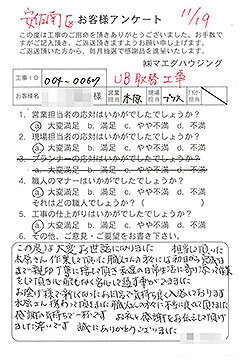 安佐南区 お客様アンケート 11/19
この度は工事のご用命を頂きありがとうございました。お手数で
すがご記入頂き、ご返送頂きますようお願い申し上げます。
ご返送頂いた方から、毎月抽選で感謝品を進呈いたします。
㈱マエダハウジング
工事ID 004-0067 UB取替工事
お客様名 様 営業担当 木原 現場担当
1. 営業担当者の応対はいかがでしたでしょうか?
a 大変満足 b. 満足 c. やや不満 d. 不満
2. 現場担当者の応対はいかがでしたでしょうか?
a 大変満足 b. 満足 c. やや不満 d. 不満
3. プランナーの応対はいかがでしたでしょうか?
a. 大変満足 b. 満足 c. やや不満 d. 不満
4. 職人のマナーはいかがでしたでしょうか?
a 大変満足 b. 満足 c. やや不満 d. 不満
それはどの職人でしょうか?( )
5. 工事の仕上がりはいかがでしたでしょうか?
a 大変満足 b. 満足 c. やや不満 d. 不満
6. その他、ご意見・ご要望をお書き下さい。
この度は大変お世話になりました 担当して頂いた
木原さん 作業して頂いた職人さんの方々には初日から最後日
まで親切丁寧に接して頂き
して頂き
お陰げ様で新しくなったお風呂で気持ち良く入浴しております
木原さん 携わって頂きました職人さんの方々に本当に良くして頂きました
後感謝の気持ちで一杯です
誠にありがとうございました